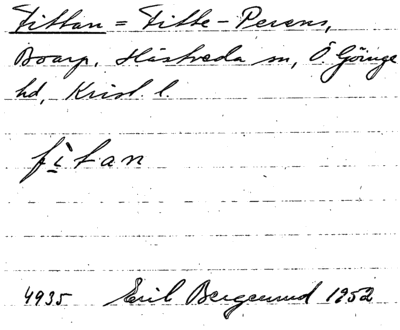 Fittan = Fitte-Perens,
Boarp, Hästveda sn, Ö. Göinge
hd, Krist. l.
fìtan
4935 Eril Bergerund 1952